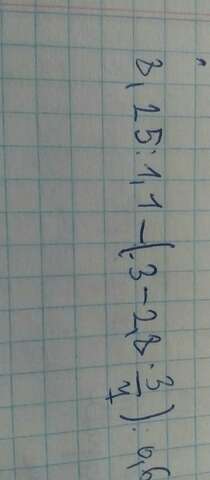 8,25:1,1-(3-2,8·3/4):0,6